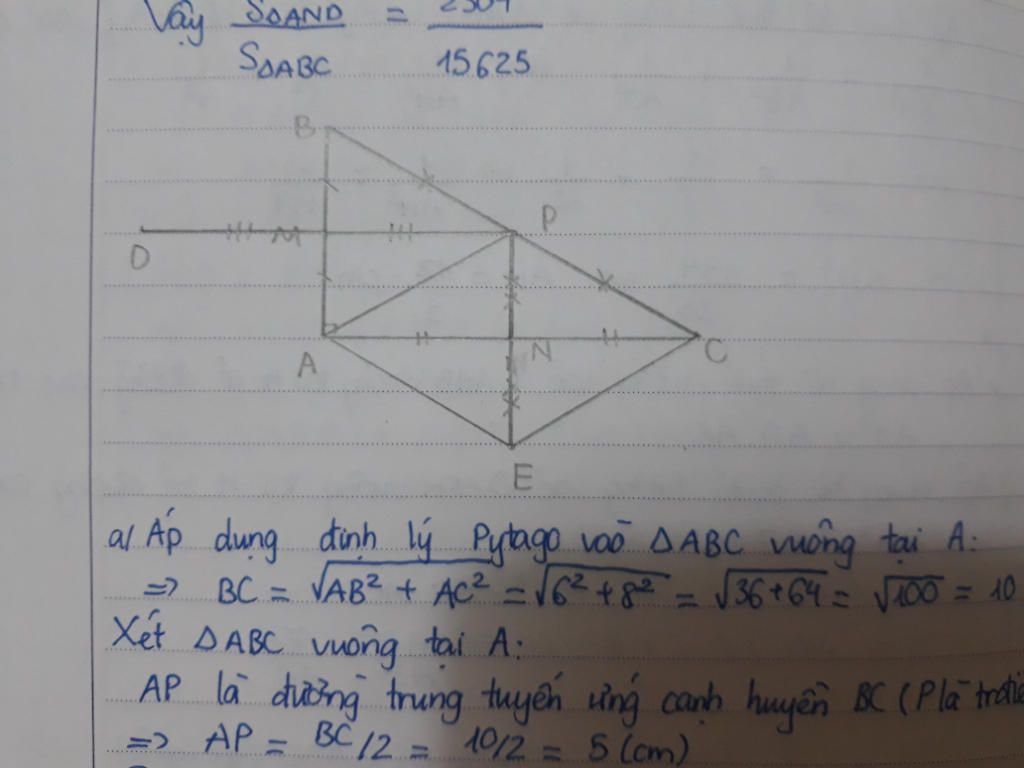 Vậy S∆AND / S∆ABC = 2304 / 15625
B
P
D
M
A
N
C
E
a/ Áp dụng định lý Pytago vào ∆ABC vuông tại A:
=> BC = √AB² + AC² = √6² + 8² = √36 + 64 = √100 = 10
Xét ∆ABC vuông tại A:
AP là đường trung tuyến ứng cạnh huyền BC (P là
=> AP = BC/2 = 10/2 = 5 (cm)